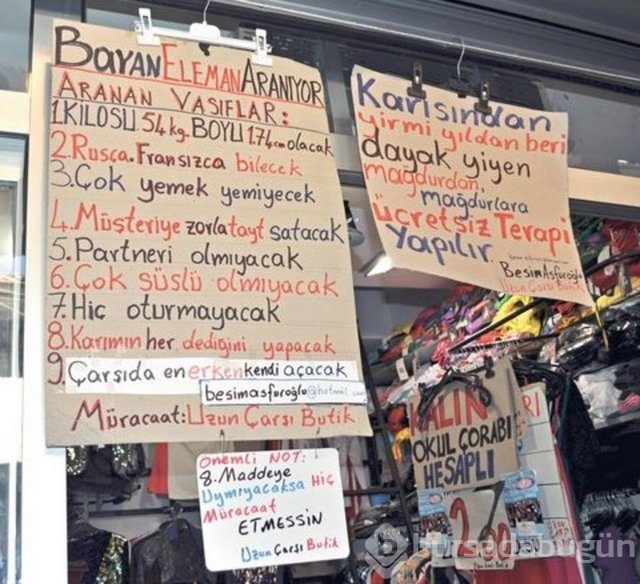 BAYAN ELEMAN ARANIYOR
ARANAN VASIFLAR:
1. KİLOSU. 54 kg. BOYU 1.74 cm olacak
2. Rusça. Fransızca bilecek
3. Çok yemek yemiyecek
4. Müşteriye zorla tayt satacak
5. Partneri olmıyacak
6. Çok süslü olmıyacak
7. Hiç oturmayacak
8. Karımın her dediğini yapacak
9. Çarşıda en erken kendi açacak
besimasfuroğlu@hotmail.com
Müracaat: Uzun Çarşı Butik
ÖNEMLİ NOT:
8. Maddeye
Uymıyacaksa Hiç
Müracaat
ETMESSİN
Uzun Çarşı Butik
Karısından
yirmi yıldan beri
dayak yiyen
mağdurdan,
mağdurlara
ücretsiz Terapi
Yapılır.
Besim Asfuroğlu
Uzun Çarşı Butik
KALIN
OKUL ÇORABI
HESAPLI
bursadabugün